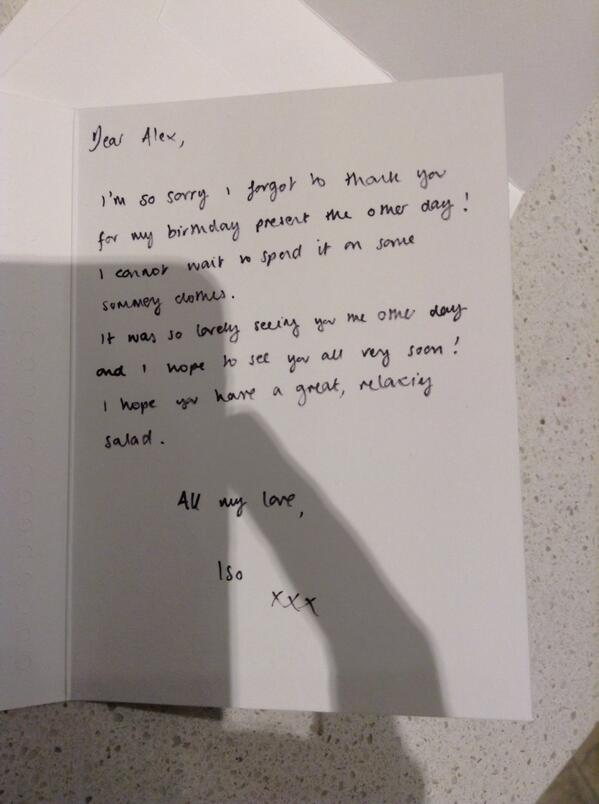 Dear Alex,
I'm so sorry I forgot to thank you
for my birthday present the other day!
I cannot wait to spend it on some
summery clothes.
It was so lovely seeing you the other day
and I hope to see you all very soon!
I hope you have a great, relaxing
salad.
All my love,
Iso
xxx